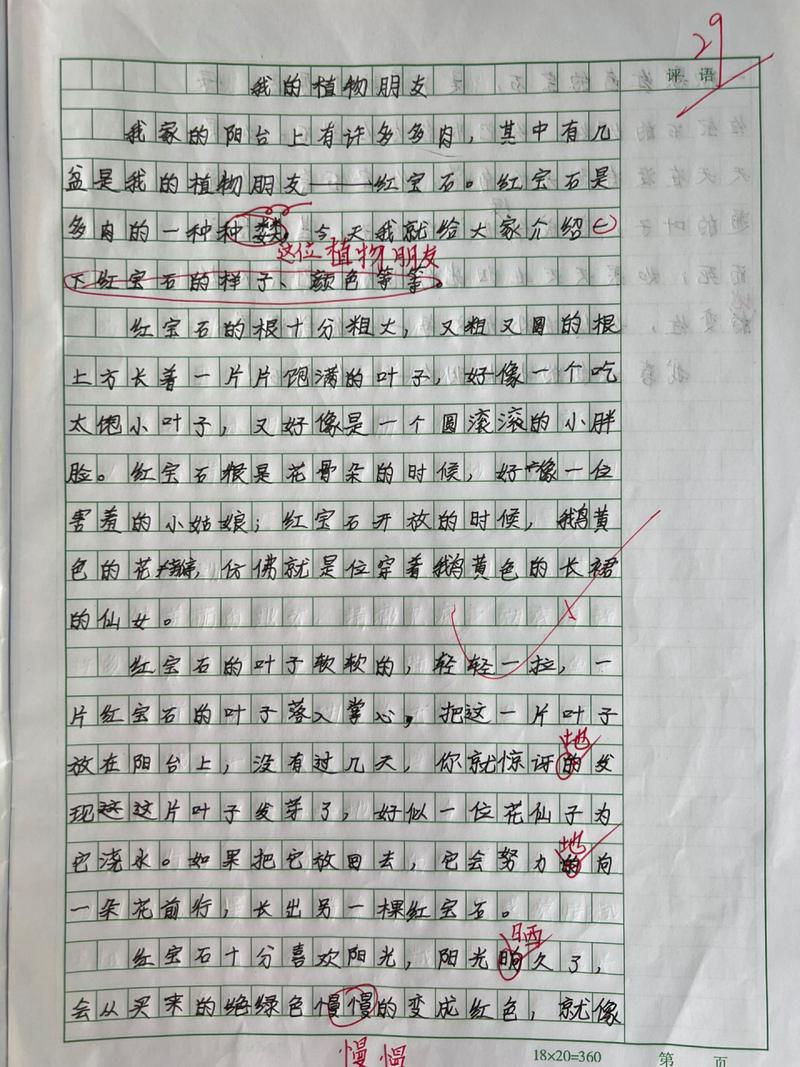 29
评语
我的植物朋友
我家的阳台上有许多多肉，其中有几
盆是我的植物朋友——红宝石。红宝石是
多肉的一种种类，今天我就给大家介绍一
这位植物朋友
下红宝石的样子、颜色等等。
红宝石的根十分粗大，又粗又圆的根
上方长着一片片饱满的叶子，好像一个吃
太饱小叶子，又好像是一个圆滚滚的小胖
脸。红宝石还是花骨朵的时候，好像一位
害羞的小姑娘；红宝石开放的时候，鹅黄
色的花瓣，仿佛就是位穿着鹅黄色的长裙
的仙女。
红宝石的叶子软软的，轻轻一拉，一
片红宝石的叶子落入掌心，把这一片叶子
地
放在阳台上，没有过几天，你就惊讶的发
现这这片叶子发芽了，好似一位花仙子为
地
它浇水。如果把它放回去，它会努力的向
一朵花前行，长出另一棵红宝石。
晒
红宝石十分喜欢阳光，阳光久了，
会从买来的绿色慢慢的变成红色，就像
慢慢
18×20=360 第 页